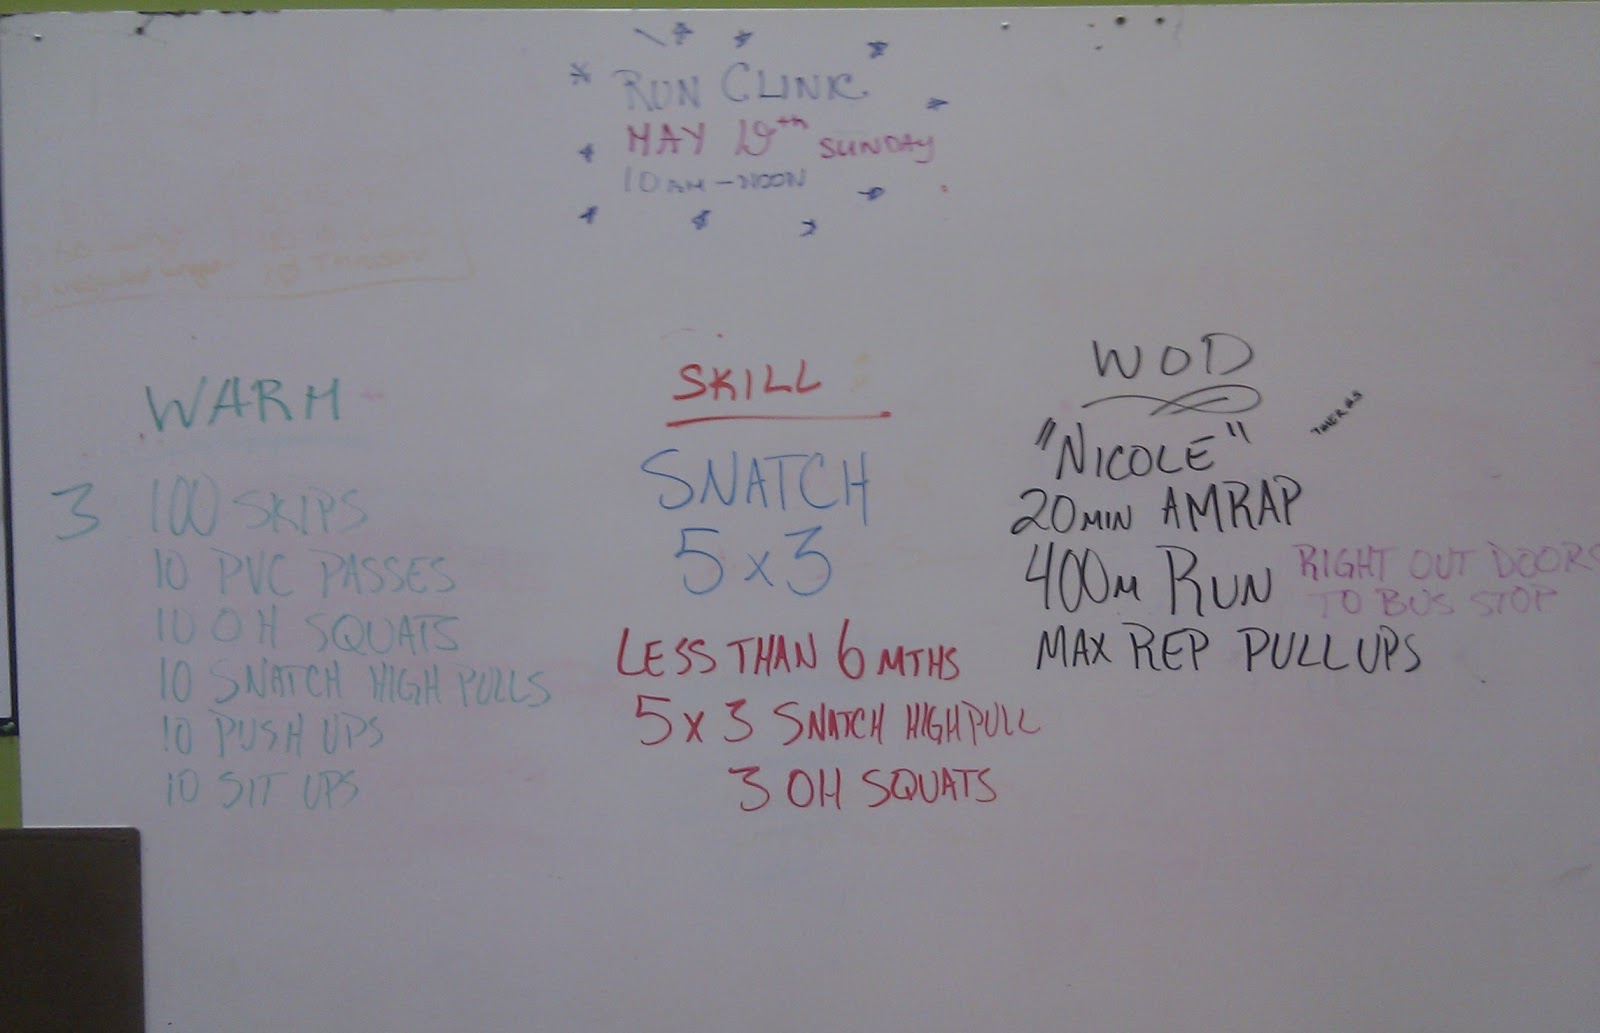 RUN CLINIC
MAY 19th SUNDAY
10AM - NOON
WARM
3 100 SKIPS
10 PVC PASSES
10 OH SQUATS
10 SNATCH HIGH PULLS
10 PUSH UPS
10 SIT UPS
SKILL
SNATCH
5 x 3
LESS THAN 6 MTHS
5 x 3 SNATCH HIGH PULL
3 OH SQUATS
WOD
"NICOLE"
20MIN AMRAP
400M RUN RIGHT OUT DOORS
TO BUS STOP
MAX REP PULL UPS